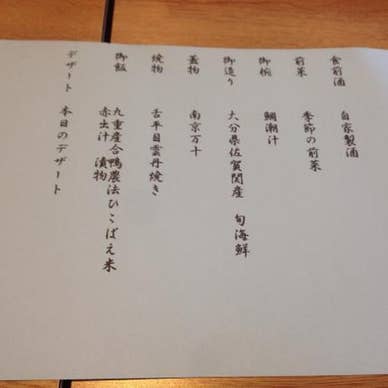 食前酒　自家製酒
前菜　季節の前菜
御椀　鯛潮汁
御造り　大分県佐賀関産　旬海鮮
蓋物　南京万十
焼物　舌平目雲丹焼き
御飯　九重産合鴨農法ひこばえ米
赤出汁　漬物
デザート　本日のデザート